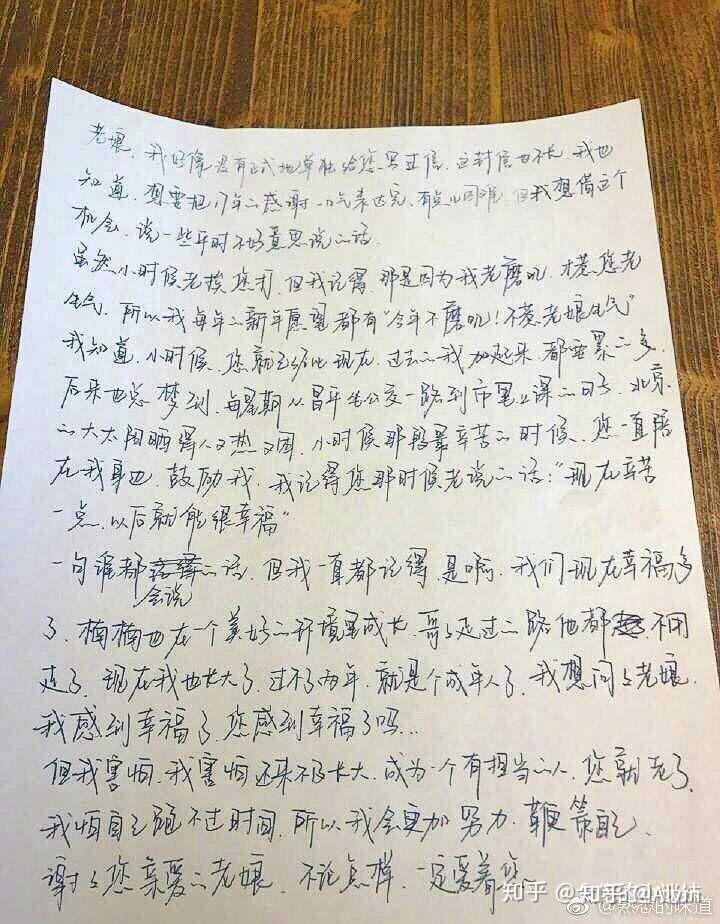 老娘，我好像没有正式地单独给您写过信，这封信也不长，我也
知道，想要把17年的感谢一口气表达完，有点儿困难，但我想借这个
机会，说一些平时不好意思说的话。
虽然小时候老挨您打，但我记得，那是因为我老磨叽，才惹您老
生气，所以我每年的新年愿望都有“今年不磨叽！不惹老娘生气”
我知道，小时候，您就已经比现在，过去的我加起来都要累的多，
后来也总梦到，每星期从昌平坐公交一路到市里上课的日子，北京
的大太阳晒得人又热又困，小时候那段最辛苦的时候，您一直陪
在我身边，鼓励我，我记得您那时候老说的话：“现在辛苦
一点，以后就能很幸福”
一句谁都会说的话，但我一直都记得，是啊，我们现在幸福多
了，楠楠也在一个美好的环境里成长，哥哥走过的路他都不用
走了，现在我也长大了，过不了两年，就是个成年人了，我想问问老娘，
我感到幸福了，您感到幸福了吗...
但我害怕，我害怕还来不及长大，成为一个有担当的人，您就老了，
我怕自己跑不过时间，所以我会更加努力，鞭策自己，
谢谢您亲爱的老娘，不论怎样，一定爱着您
知乎 @
的味道